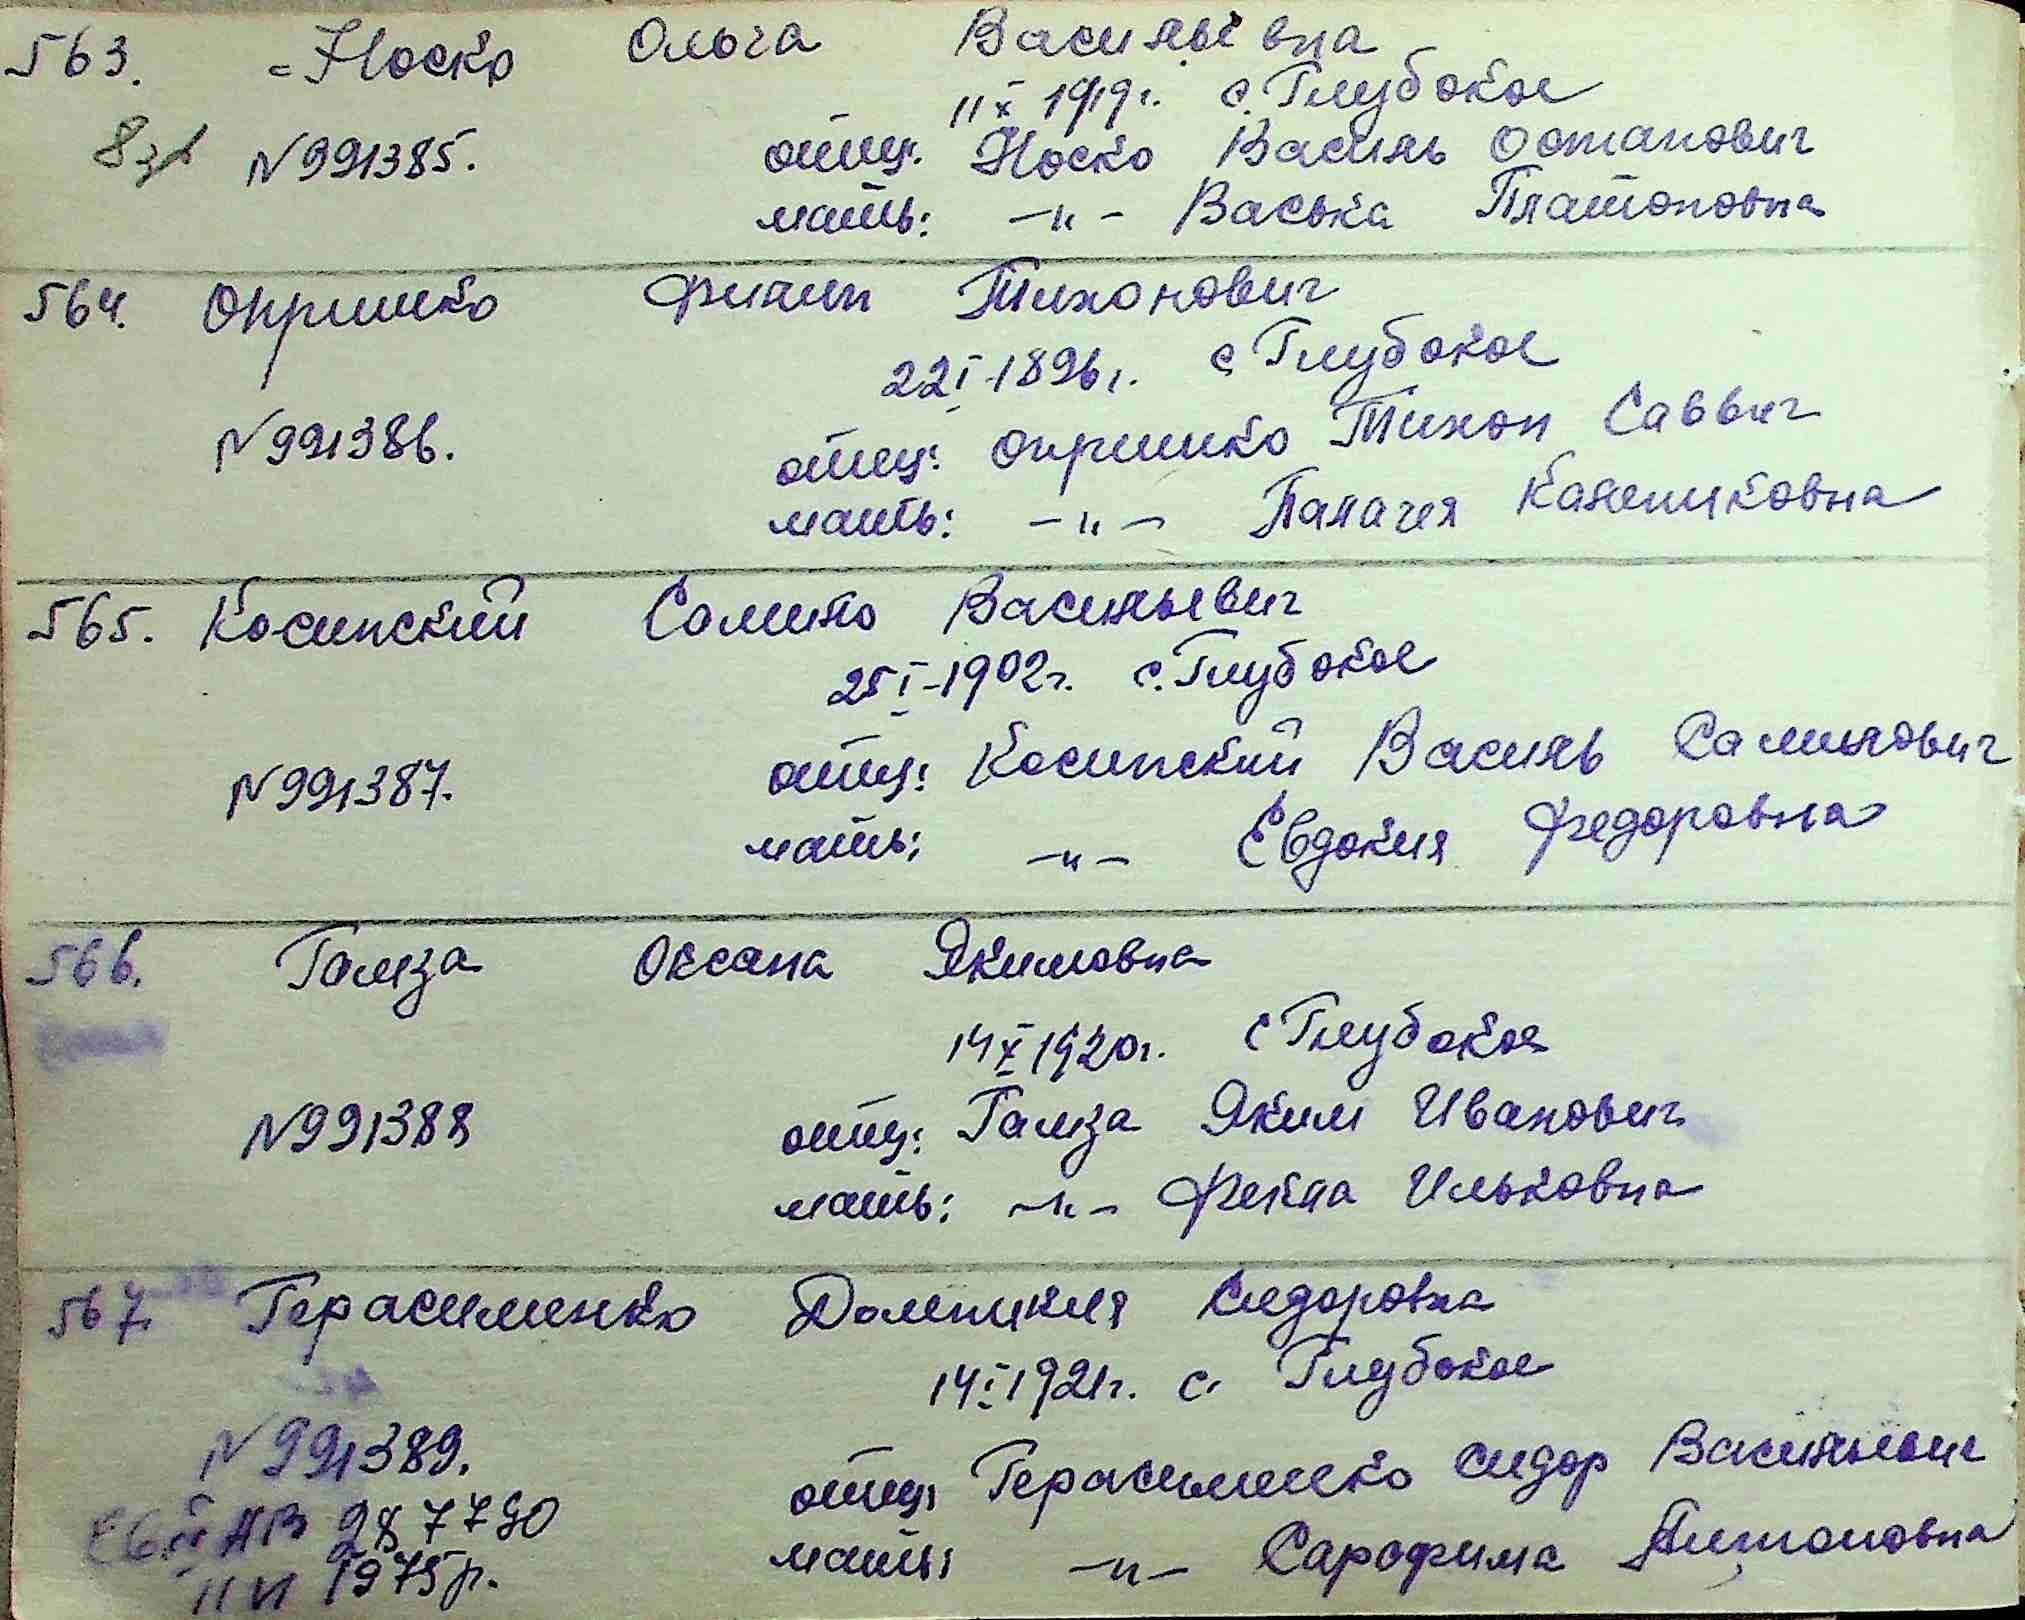 563. Носко Ольга Васильевна
11 X 1919 г. с. Глубокое
8 зв N 991385. отец: Носко Василь Остапович
мать: -"- Васька Платоновна
564. Опришко Филип Тихонович
22 I-1896 г. с Глубокое
N 991386. отец: Опришко Тихон Саввич
мать: -"- Палагея Калениковна
565. Косинский Самило Васильевич
25 I-1902 г. с. Глубокое
N 991387. отец: Косинский Василь Самилович
мать: -"- Евдокия Федоровна
566. Гамза Оксана Якимовна
14 X 1920 г. с Глубокое
N 991388 отец: Гамза Яким Иванович
мать: -"- Фекла Ильковна
567. Герасименко Домникия Сидоровна
14 I 1921 г. с. Глубокое
N 991389.
отец: Герасименко Сидор Васильевич
АВ 287790
мать: -"- Сарофима Антоновна
11 VI 1975 р.